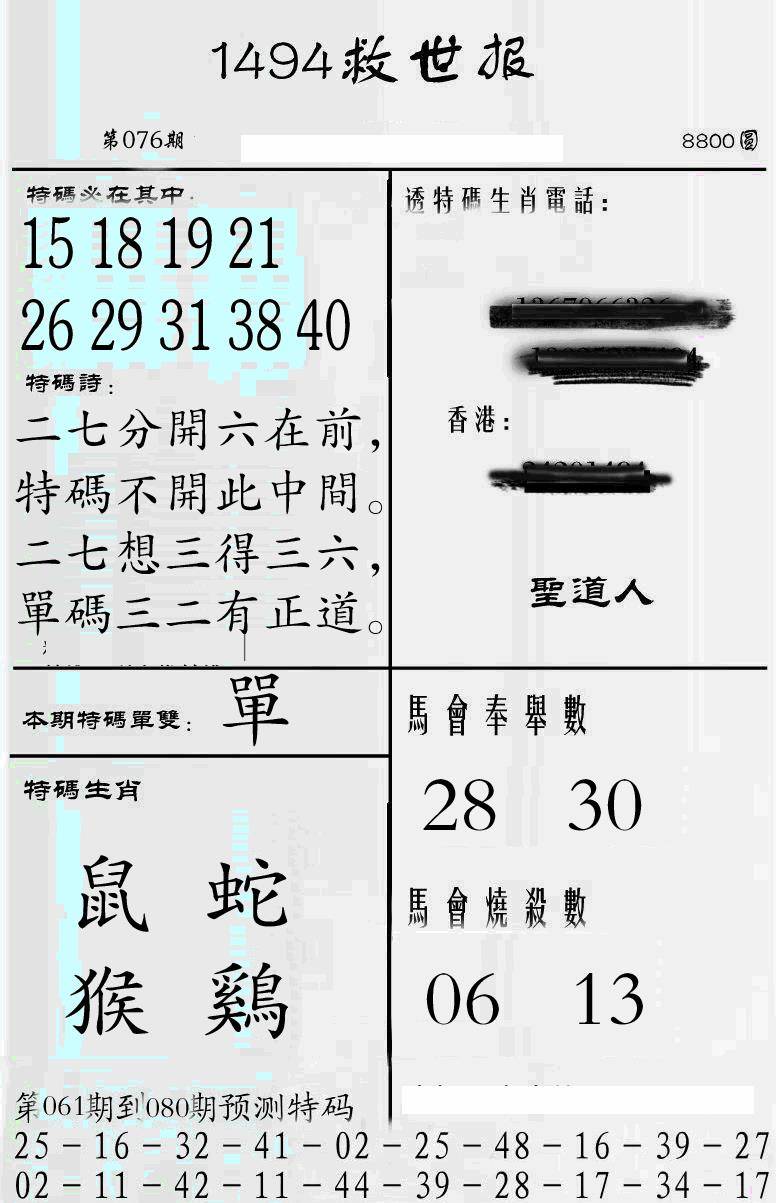 1494救世报
第076期
8800圓
特碼必在其中.
15 18 19 21
26 29 31 38 40
特碼詩:
二七分開六在前,
特碼不開此中間。
二七想三得三六,
單碼三二有正道。
本期特碼單雙: 單
特碼生肖
鼠 蛇
猴 鷄
透特碼生肖電話:
香港:
聖道人
馬會奉舉數
28 30
馬會燒殺數
06 13
第061期到080期预测特码
25-16-32-41-02-25-48-16-39-27
02-11-42-11-44-39-28-17-34-17